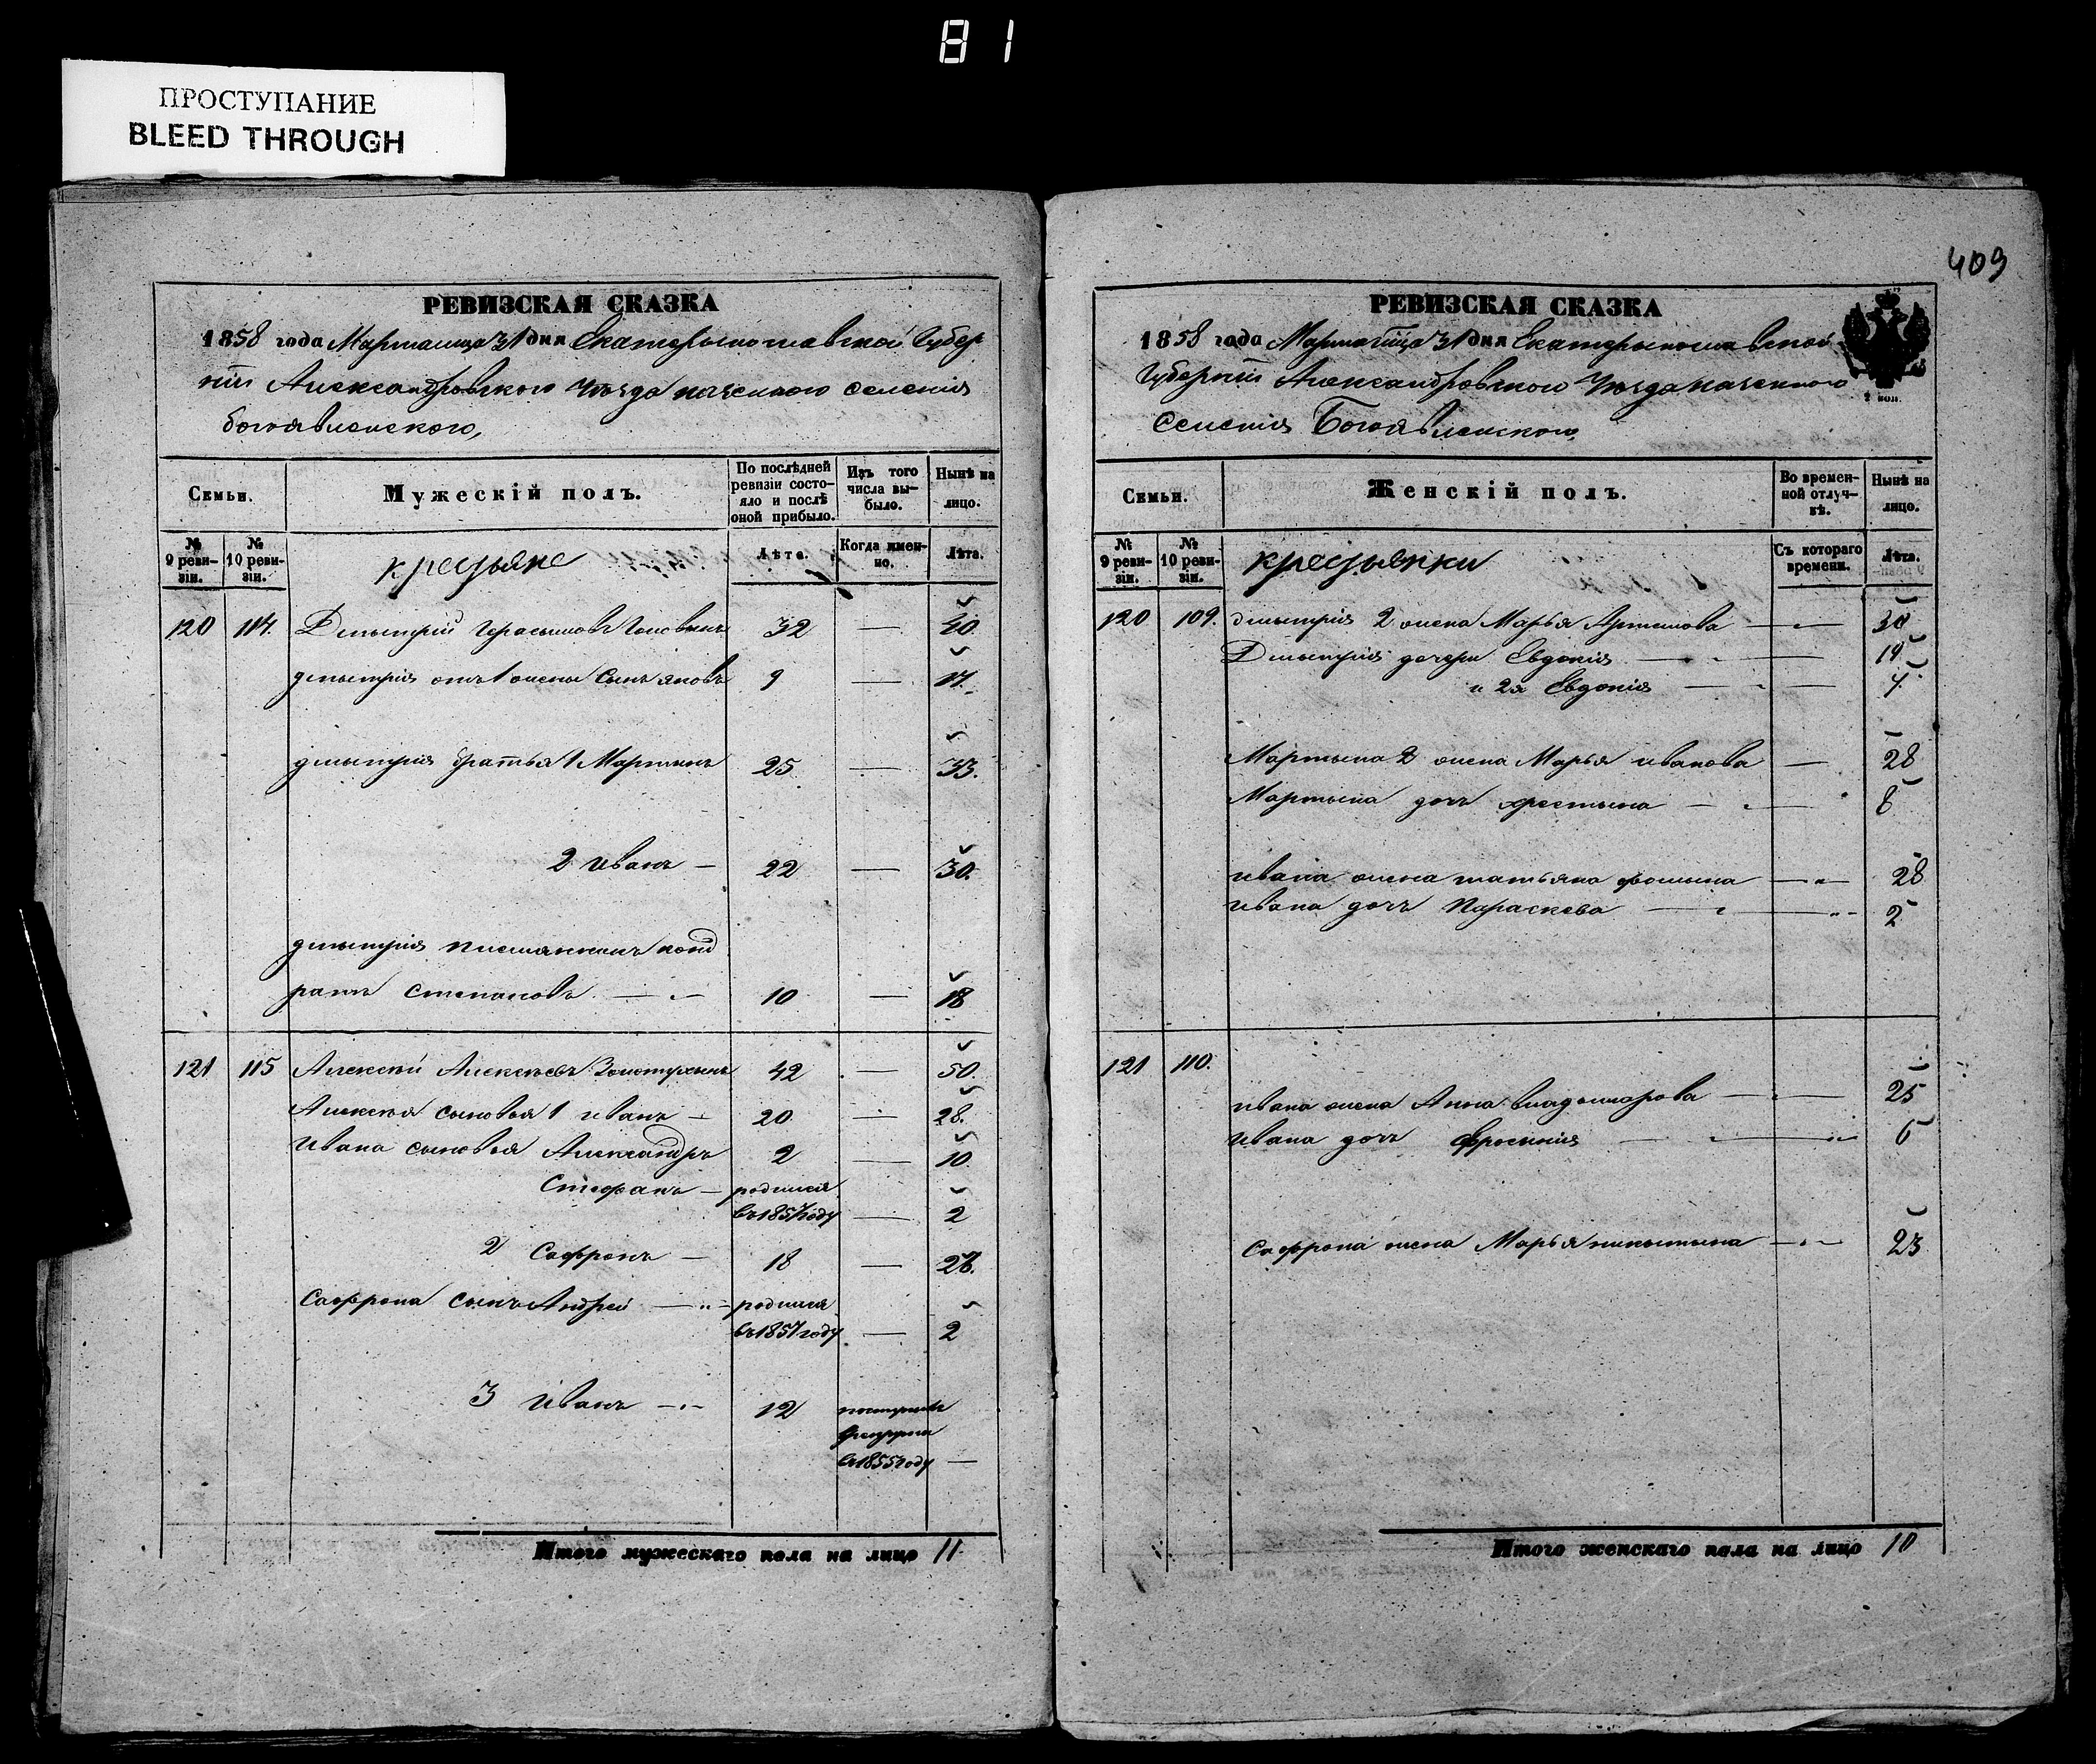 81
ПРОСТУПАНИЕ
BLEED THROUGH
409
РЕВИЗСКАЯ СКАЗКА
1858 года Марта мца 31 дня Екатерынославской Губер
нііи Александровского Уѣзда казенного селенія
богоявленского,
Семьи.
Мужескій полъ.
По послѣдней ревизіи состояло и послѣ оной прибыло.
Изъ того числа выбыло.
Нынѣ на лицо.
№ 9 ревизіи.
№ 10 ревизіи.
крестьяне
Лѣта.
Когда именно.
Лѣта.
120 114. Дмытрій Герасымовъ 32 — 40.
дмытрія отъ 1 жены сынъ яковъ 9 — 17.
дмытрія братья 1 Мартынъ 25 — 33.
2 Иванъ — 22 — 30.
дмытрія племянникъ конд
ратъ Степановъ — 10 — 18
121 115 Алексѣй Алексѣевъ Золотухынъ 42 — 50.
Алексѣя сыновья 1 иванъ — 20 — 28.
Ивана сыновья Александръ 2 — 10
Стефанъ — родился
въ 1857 году — 2
2 Сафронъ — 18 — 26.
Сафрона сынъ Андрей — родился
въ 1857 году — 2
3 Иванъ — 12
въ 1855 году —
Итого мужескаго пола на лицо 11
РЕВИЗСКАЯ СКАЗКА
1858 года Марта мца 31 дня Екатерынославской
Губерніи Александровского Уѣзда казенного
2 коп.
Селенія Богоявленского,
Семьи.
Женскій полъ.
Во временной отлучкѣ.
Нынѣ на лицо.
№ 9 ревизіи.
№ 10 ревизіи.
крестьянки
Съ котораго времени.
Лѣта.
120 109. дмытрія 2 жена Марья Артемова — 30
Дмытрія дочери Евдокія — 14
и 2я Евдокія — 7.
Мартына 2 жена Марья иванова — 28
Мартына дочь хрестына — 8
ивана жена татьяна фомына — 28
ивана дочь Параскева — 2
121 110.
ивана жена Анна — 25
Ивана дочь Фросинія — 6
Сафрона жена Марья никытына — 23
Итого женскаго пола на лицо 10